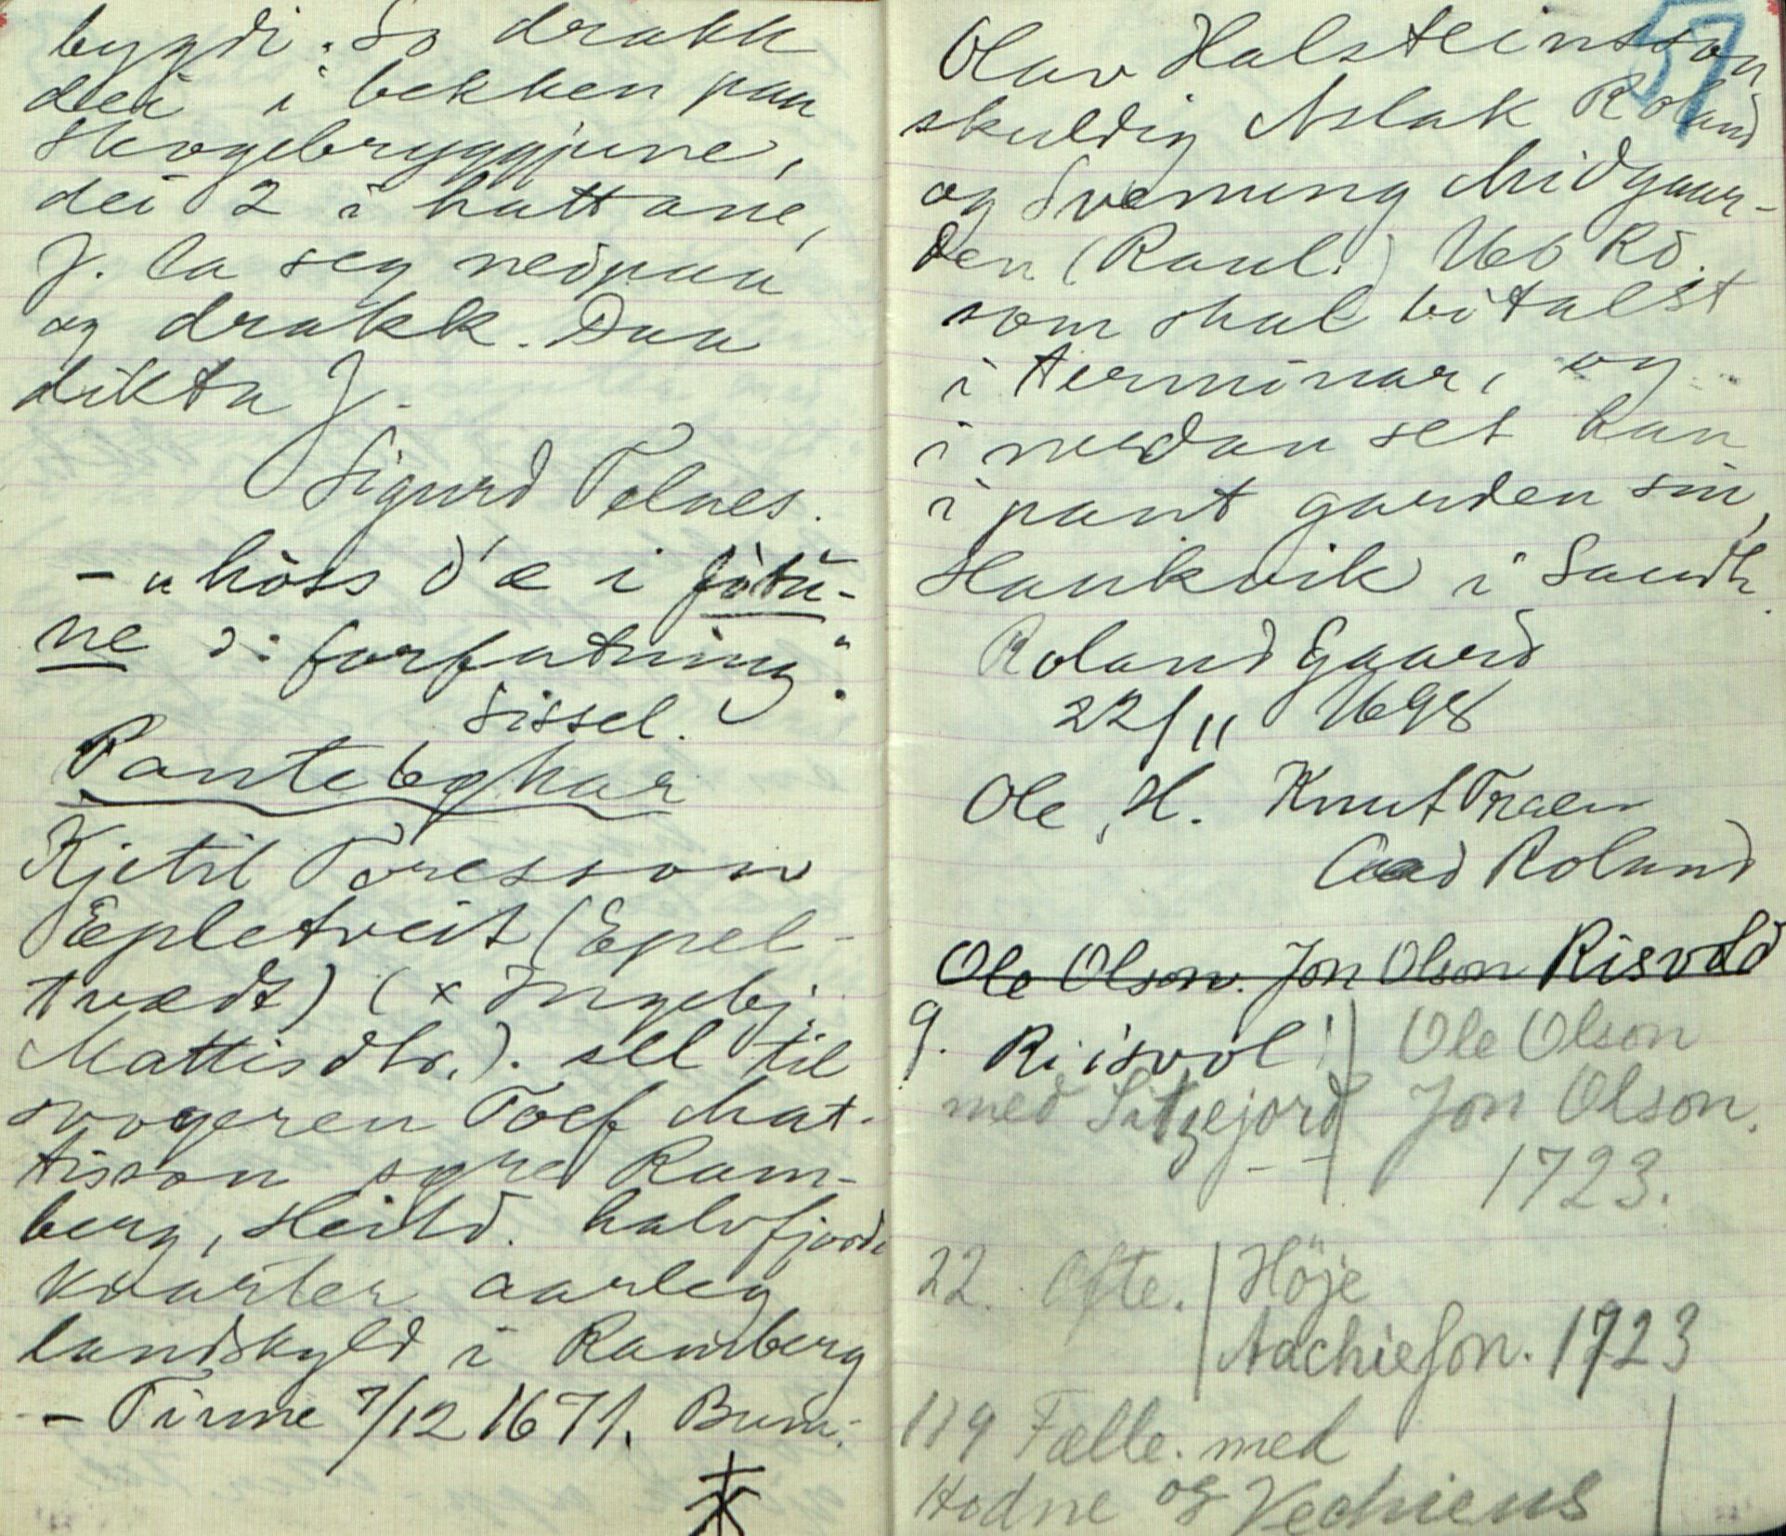 bygdi. So drakk
dei i bekken paa
Skogebryggjune,
dei 2 i hattane,
J. la seg nedpaa
og drakk. Daa
dikta J.
Sigurd Telnes.
- "höss d'æ i jòtu-
ne ɔ: forfatning".
Sissel.
Pantebøkar
Kjetil Toresson
Æpletveit (Epel-
tvædt) (x Ingebj.
Mattisdtr.). sel til
svogeren Toef Mat-
tisson syre Ram-
berg, Heitd. halvfjorde
kvarter aarleg
landskyld i Ramberg
- Tinne 7/12 1671. Bum:
57
Olav Halsteinsson
skuldig Aslak Roland
og Svenning Midgaar-
den (Raul.) 166 Rd.
som skal bitalst
i terminar, og
i medan set han
i pant garden sin,
Haukvik i Saudh.
Roland Gaard
22/11 1698
Ole H. Knut Traen
Aad Roland
Ole Olson. Jon Olson Risvold
9. Riisvol | Ole Olson
med Sitzejord | Jon Olson.
1723.
22. Ofte. | Höje
Aachieson. 1723
119 Fælle. med
Hodne og Vechiens